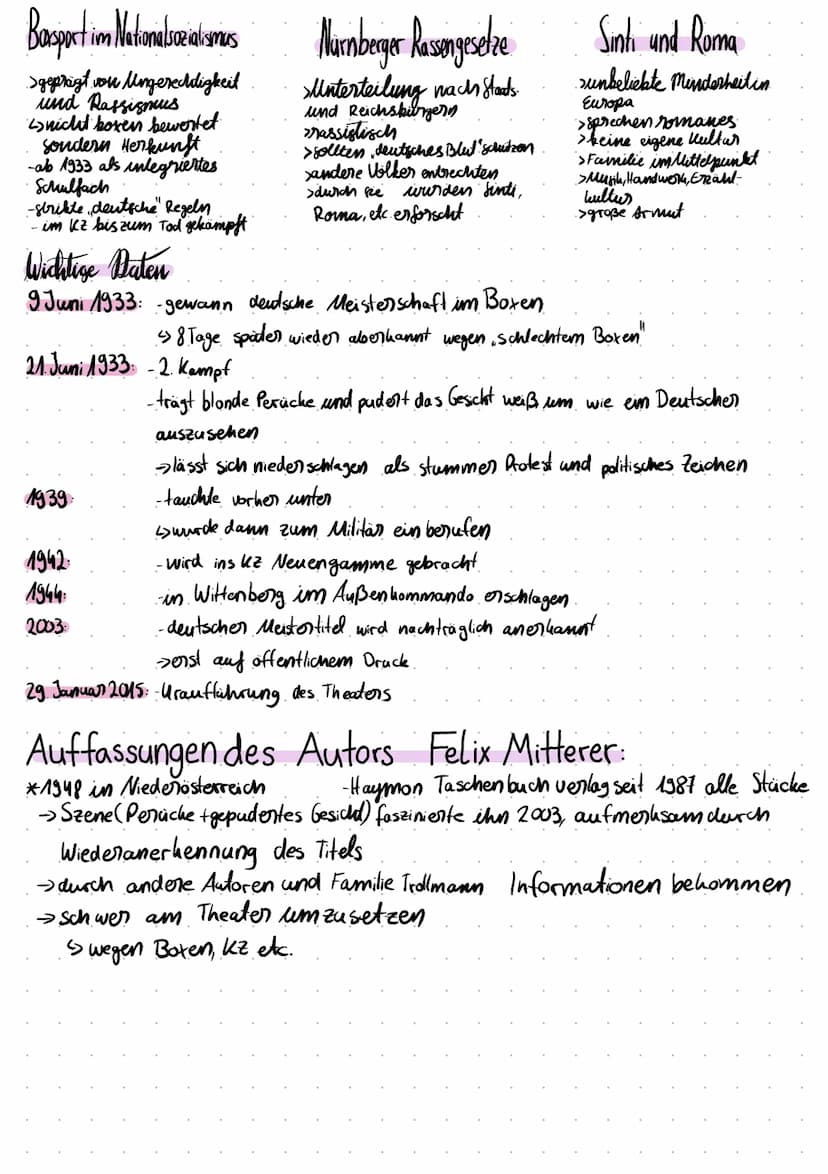 Boxsport im Nationalsozialismus
>geprägt von Ungerechtigkeit
und Rassismus
↳nicht boxen bewertet
sondern Herkunft
-ab 1933 als integriertes
Schulfach
-strikte „deutsche" Regeln
- im KZ bis zum Tod gekämpft
Nürnberger Rassengesetze
>Unterteilung nach Staats-
und Reichsbürgern
>rassistisch
>sollten „deutsches Blut" schützen
>andere Völker entrechten
>durch sie wurden Sinti,
Roma, etc. erforscht
Sinti und Roma
>unbeliebte Minderheit in
Europa
>sprechen romanes
>keine eigene Kultur
>Familie im Mittelpunkt
>Musik, Handwerk, Erzähl-
kultur
>große Armut
Wichtige Daten
9 Juni 1933: -gewann deutsche Meisterschaft im Boxen
↳ 8 Tage später wieder aberkannt wegen „schlechtem Boxen"
21. Juni 1933: - 2. Kampf
-trägt blonde Perücke und pudert das Gesicht weiß um wie ein Deutscher
auszusehen
→lässt sich niederschlagen als stummer Protest und politisches Zeichen
1939: -tauchte vorher unter
↳wurde dann zum Militär einberufen
1942: -wird ins KZ Neuengamme gebracht
1944: -in Wittenberg im Außenkommando erschlagen
2003: -deutscher Meistertitel wird nachträglich anerkannt
→erst auf öffentlichem Druck
29 Januar 2015: -Uraufführung des Theaters
Auffassungen des Autors Felix Mitterer:
*1948 in Niederösterreich -Haymon Taschenbuch verlag seit 1987 alle Stücke
→Szene (Perücke + gepudertes Gesicht) faszinierte ihn 2003, aufmerksam durch
Wiederanerkennung des Titels
→durch andere Autoren und Familie Trollmann Informationen bekommen
→schwer am Theater umzusetzen
↳ wegen Boxen, KZ etc.